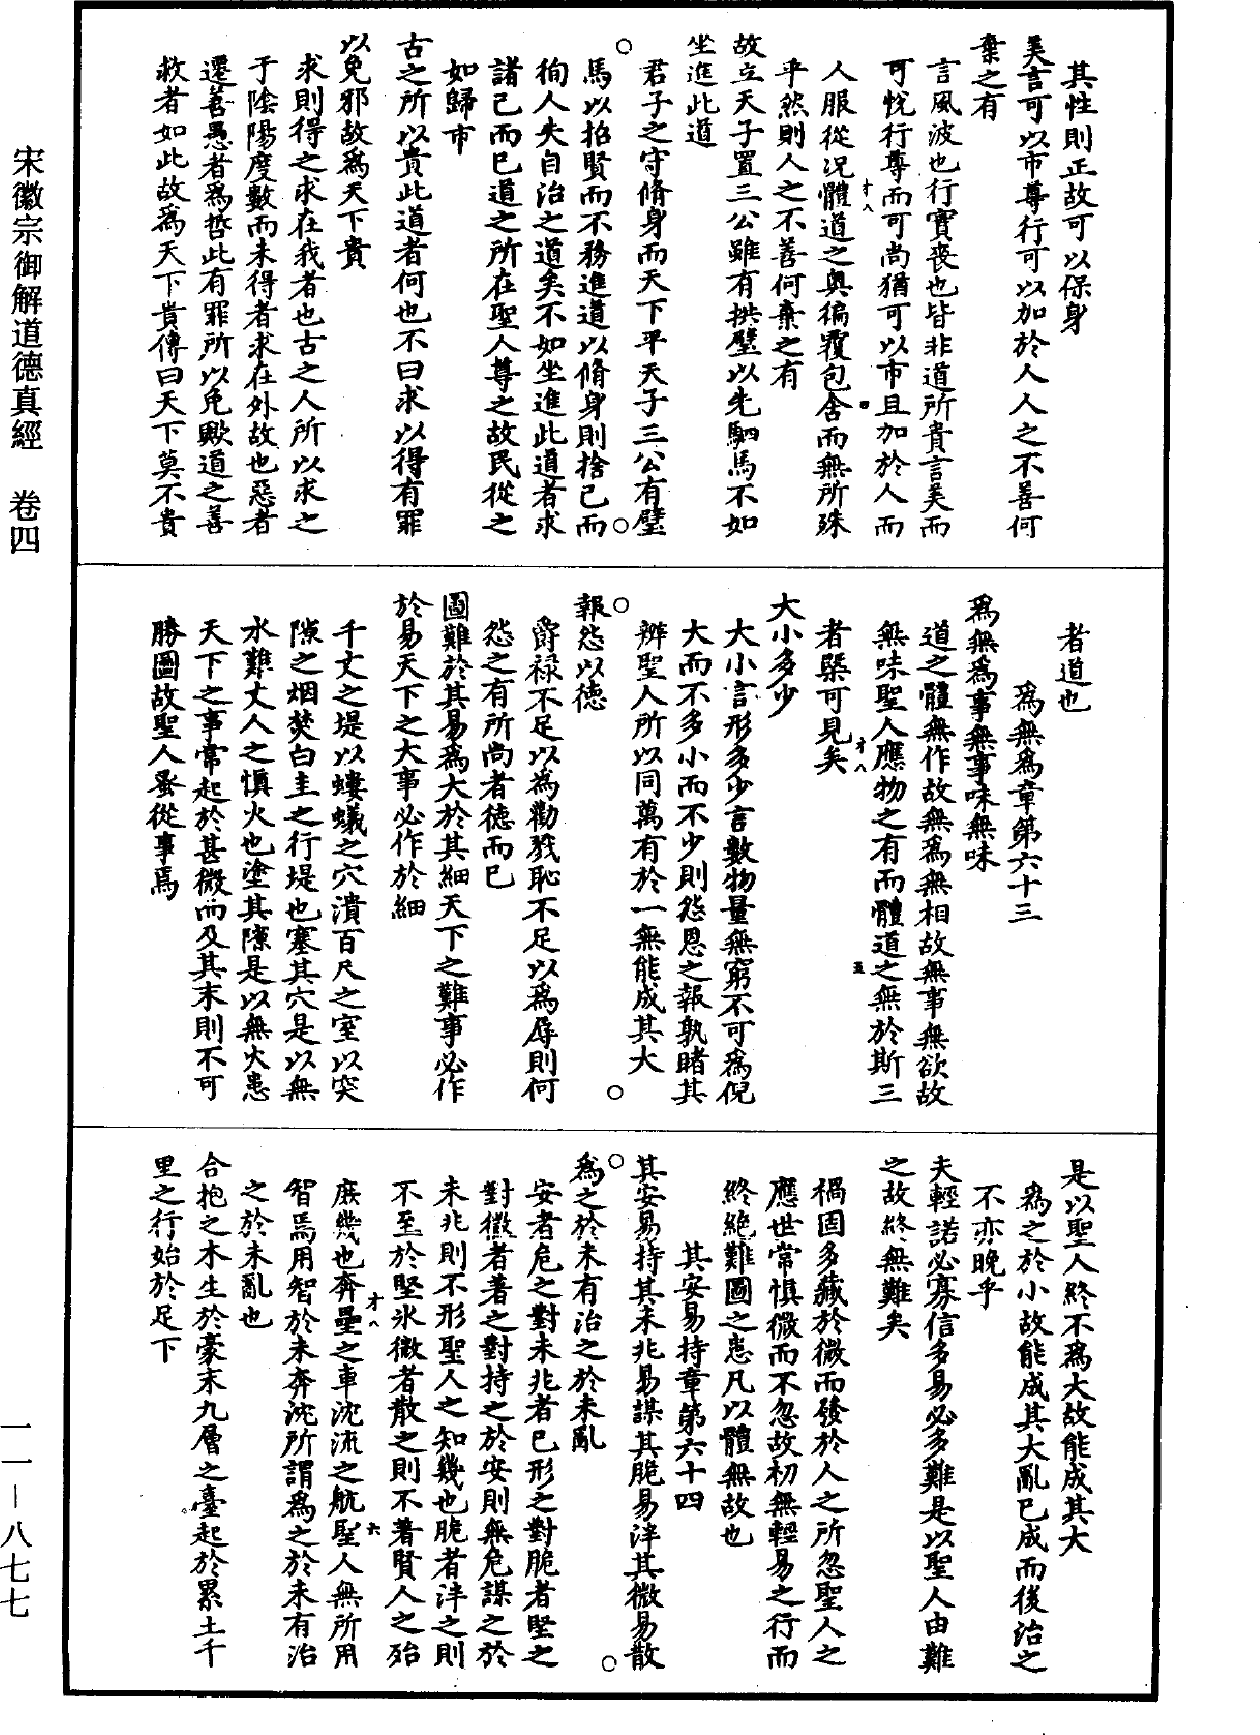 其性則正故可以保身
美言可以市尊行可以加於人人之不善何
棄之有
言風波也行實喪也皆非道所貴言美而
可悅行尊而可尚猶可以市且加於人而
人服從況體道之奧徧覆包含而無所殊
乎然則人之不善何棄之有
故立天子置三公雖有拱璧以先駟馬不如
坐進此道
君子之守脩身而天下平天子三公有璧
馬以招賢而不務進道以脩身則捨己而
徇人失自治之道矣不如坐進此道者求
諸己而已道之所在聖人尊之故民從之
如歸市
古之所以貴此道者何也不曰求以得有罪
以免邪故為天下貴
求則得之求在我者也古之人所以求之
于陰陽度數而未得者求在外故也惡者
遷善愚者為哲此有罪所以免歟道之善
救者如此故為天下貴傳曰天下莫不貴
者道也
為無為章第六十三
為無為事無事味無味
道之體無作故無為無相故無事無欲故
無味聖人應物之有而體道之無於斯三
者槩可見矣
大小多少
大小言形多少言數物量無窮不可為倪
大而不多小而不少則怨恩之報孰睹其
辨聖人所以同萬有於一無能成其大
報怨以德
爵祿不足以為勸戮恥不足以為辱則何
怨之有所尚者德而已
圖難於其易為大於其細天下之難事必作
於易天下之大事必作於細
千丈之堤以螻蟻之穴潰百尺之室以突
隙之烟焚白圭之行堤也塞其穴是以無
水難丈人之慎火也塗其隙是以無火患
天下之事常起於甚微而及其末則不可
勝圖故聖人蚤從事焉
是以聖人終不為大故能成其大
為之於小故能成其大亂已成而後治之
不亦晚乎
夫輕諾必寡信多易必多難是以聖人由難
之故終無難矣
禍固多藏於微而發於人之所忽聖人之
應世常慎微而不忽故初無輕易之行而
終絕難圖之患凡以體無故也
其安易持章第六十四
其安易持其未兆易謀其脆易泮其微易散
為之於未有治之於未亂
安者危之對未兆者已形之對脆者堅之
對微者著之對持之於安則無危謀之於
未兆則不形聖人之知幾也脆者泮之則
不至於堅氷微者散之則不著賢人之殆
庶幾也奔壘之車沈流之航聖人無所用
智焉用智於未奔沈所謂為之於未有治
之於未亂也
合抱之木生於豪末九層之臺起於累土千
里之行始於足下
宋徽宗御解道德真經　卷四
一一—八七七